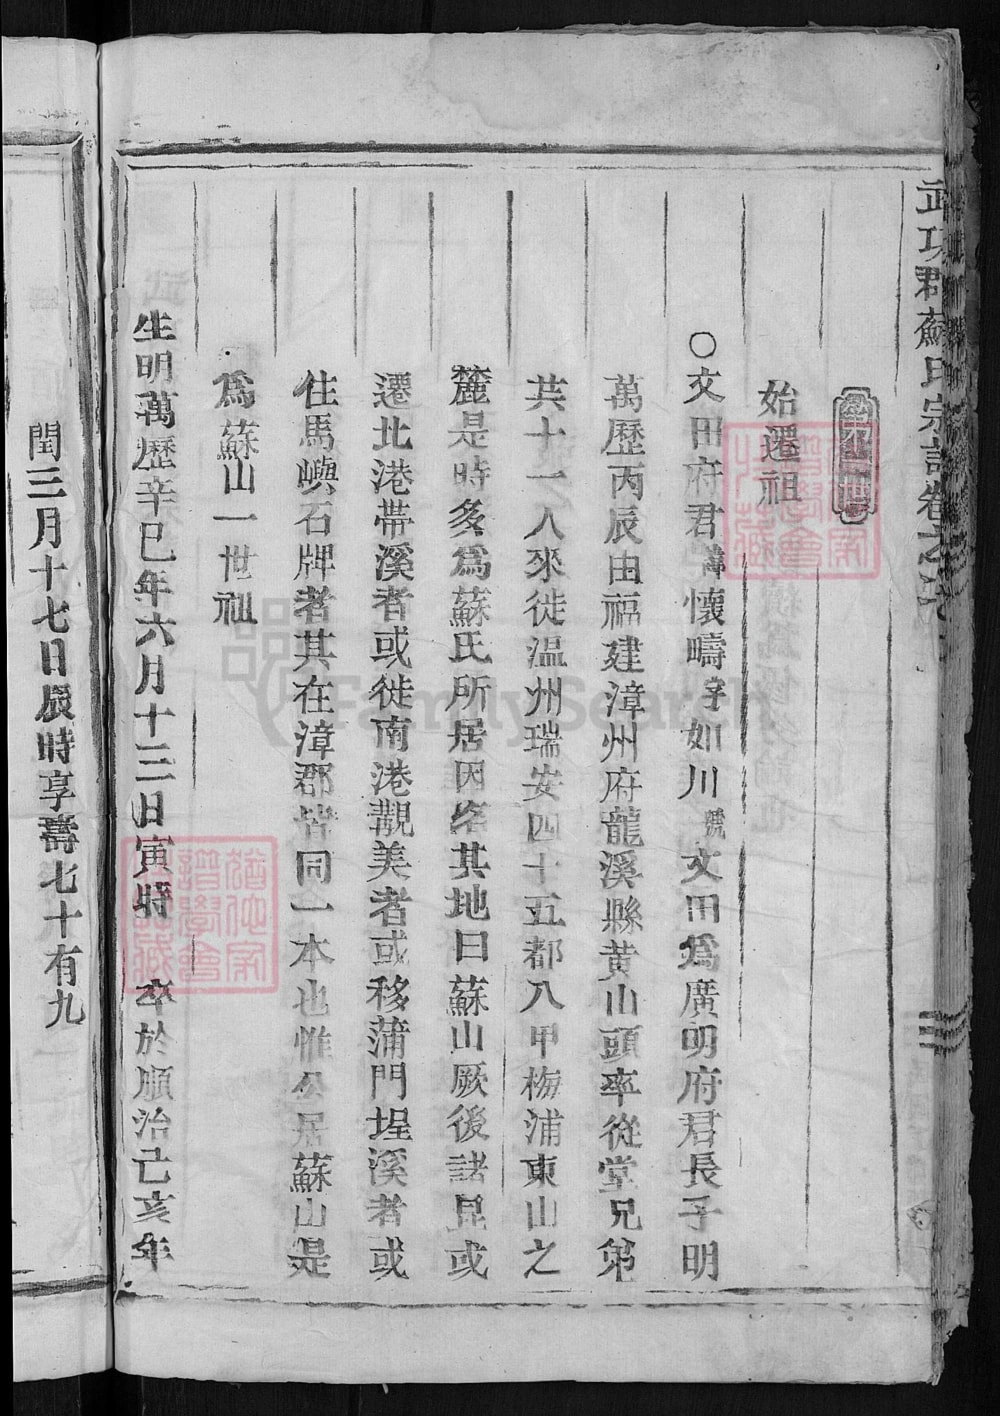 武功郡蘇氏宗譜卷之
始遷祖
○文田府君諱懷疇字如川號文田爲廣明府君長子明
萬歷丙辰由福建漳州府龍溪縣黄山頭率從堂兄弟
共十一人來徙温州瑞安四十五都八甲梅浦東山之
麓是時多爲蘇氏所居因名其地曰蘇山厥後諸昆或
遷北港帶溪者或徙南港觀美者或移蒲門埕溪者或
住馬嶼石牌者其在漳郡皆同一本也惟公居蘇山是
爲蘇山一世祖
生明萬歷辛巳年六月十三日寅時 卒於順治己亥年
閏三月十七日辰時享壽七十有九
FamilySearch